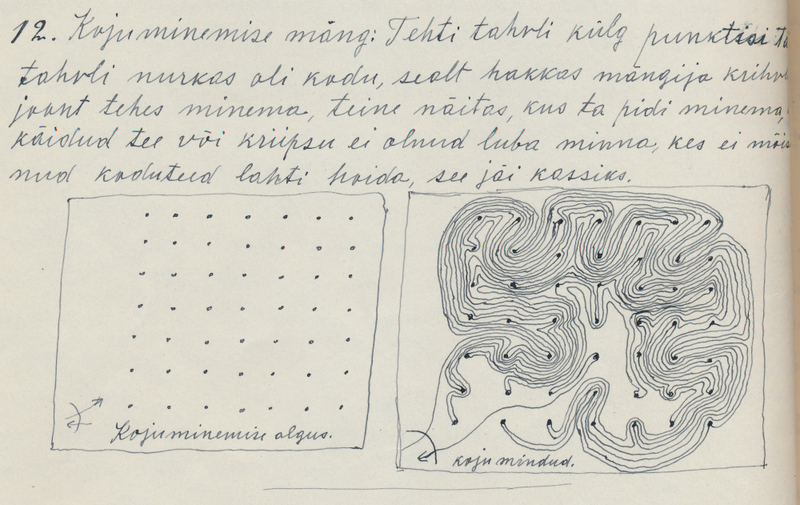 12. Kojuminemise mäng: Tehti tahvli külg punktisi
tahvli nurkas oli kodu, sealt hakkas mängija
joont tehes minema, teine näitas, kus ta pidi minema,
käidud tee või kriipsu ei olnud luba minna, kes ei
nud koduteed lahti hoida, see jäi kassiks.
Kojuminemise algus.
koju mindud.